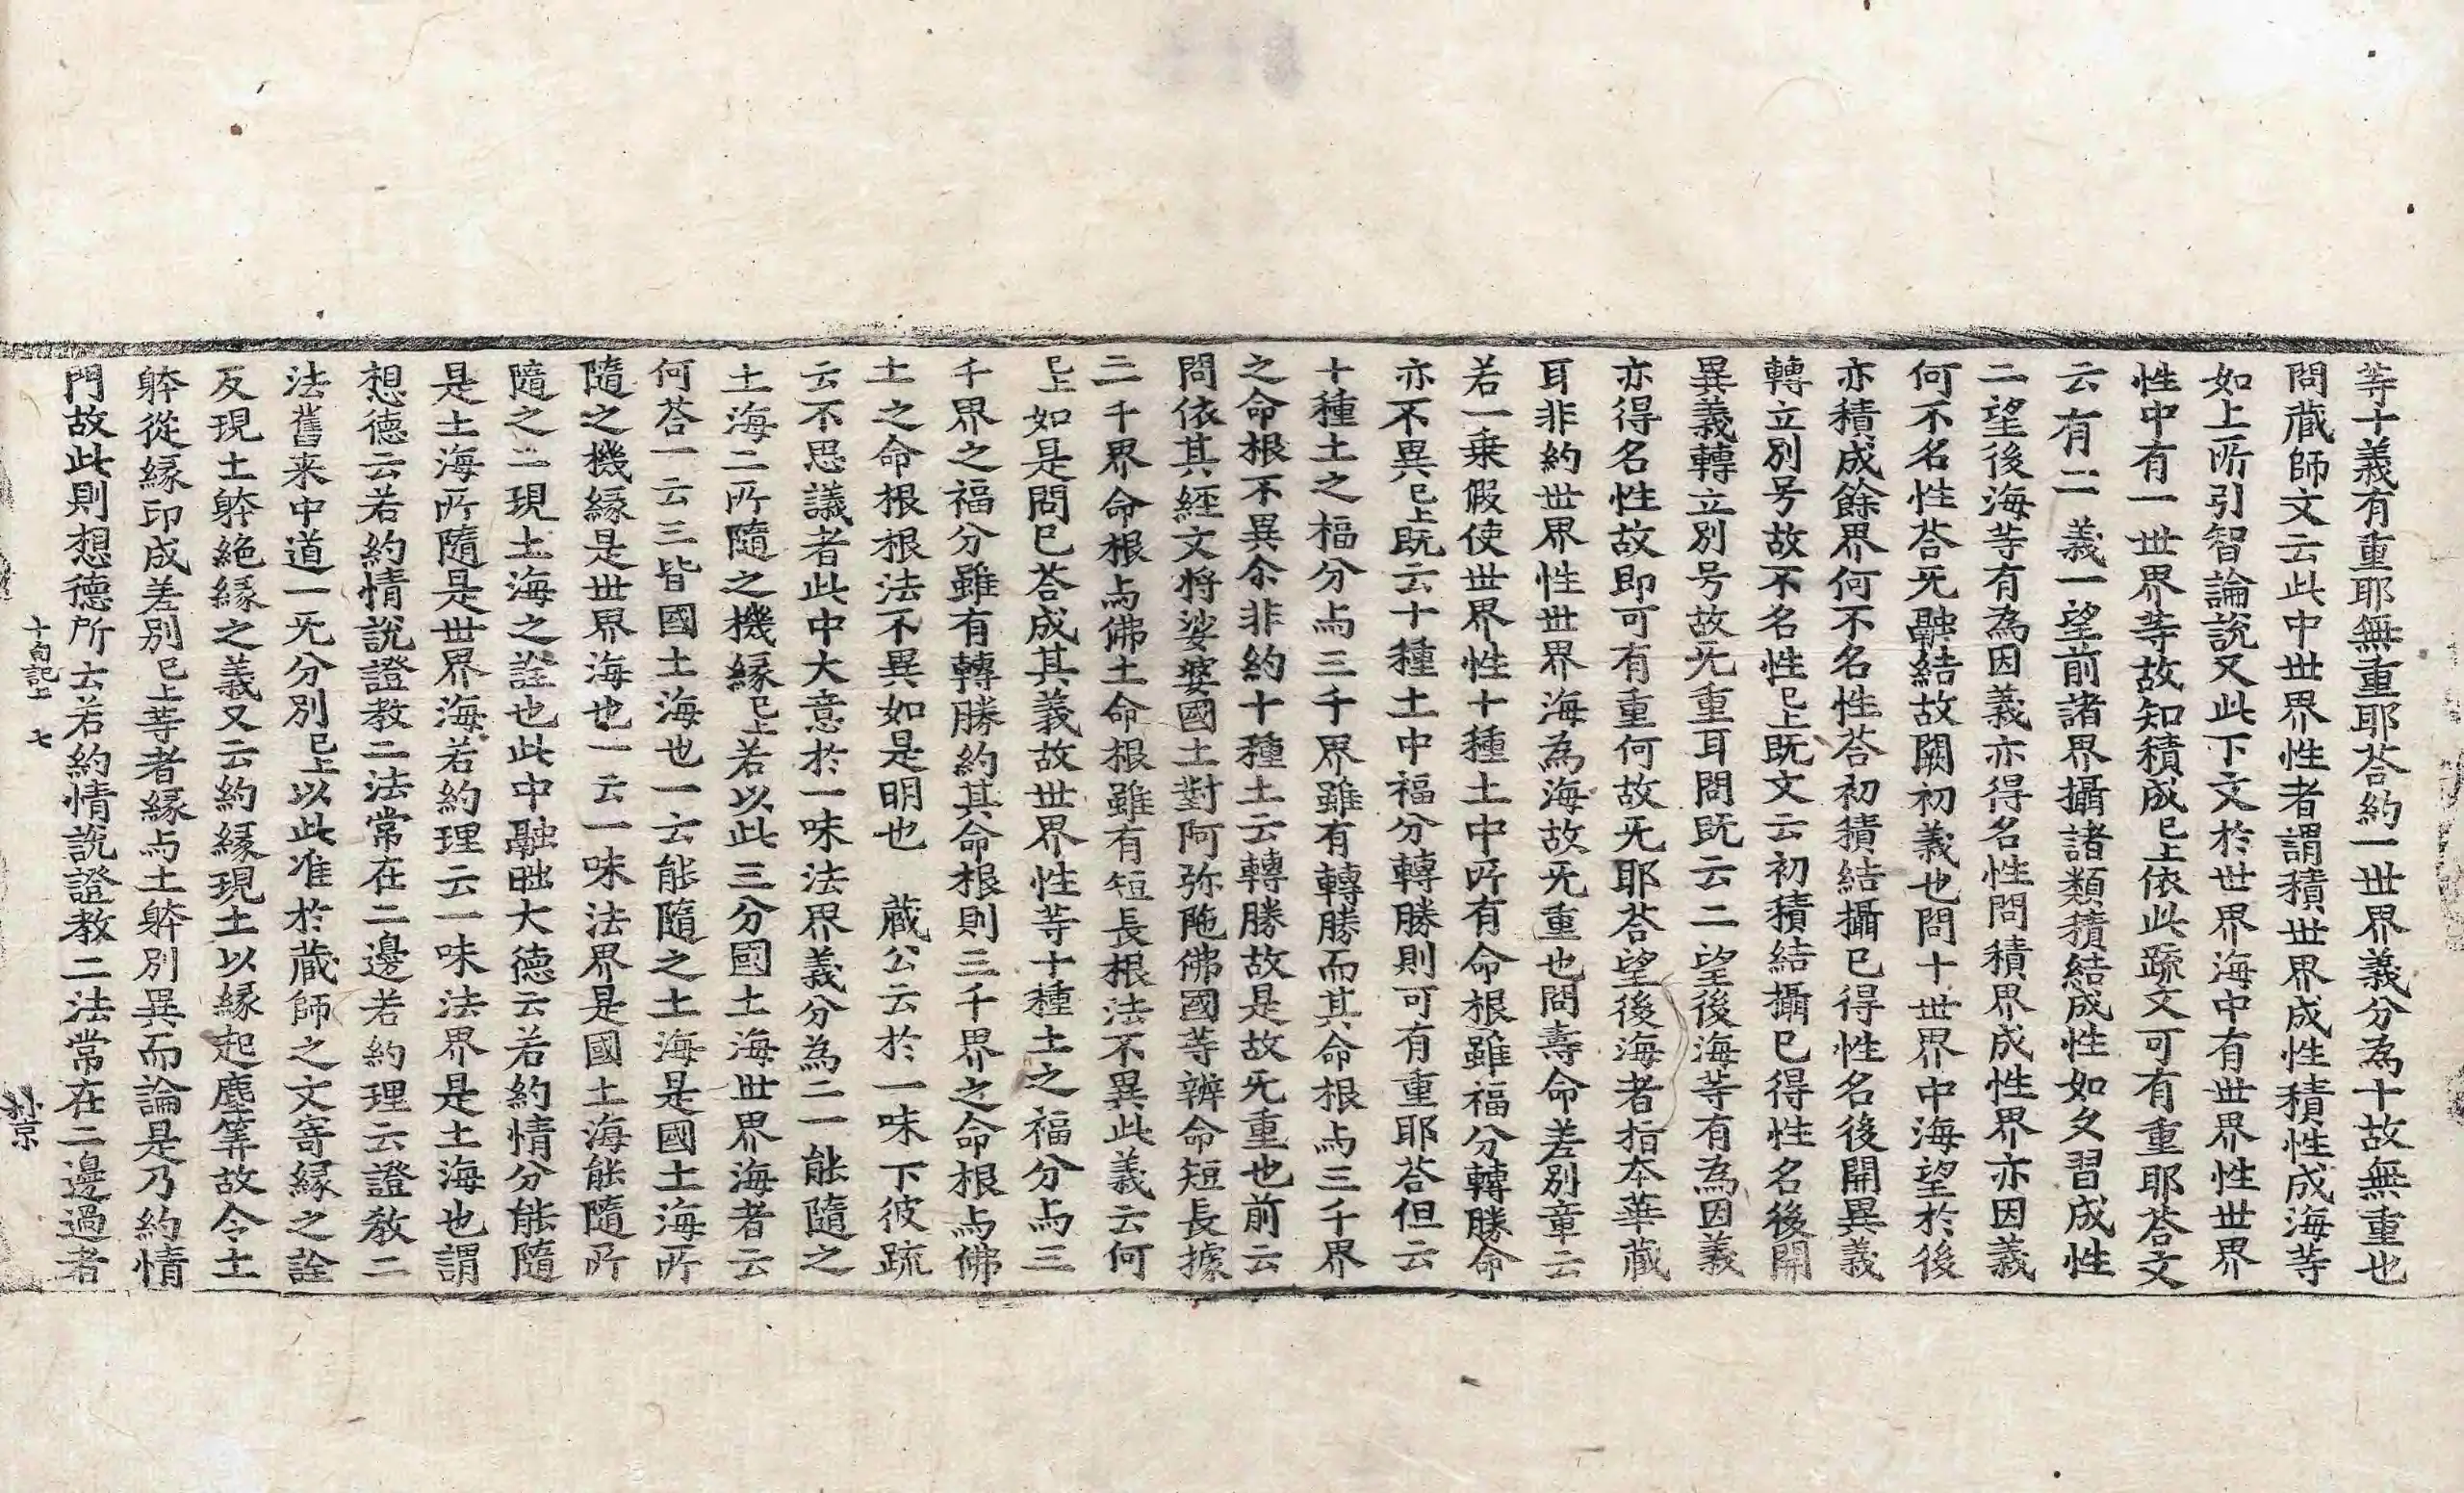 等十義有重耶無重耶荅約一世界義分為十故無重也
問蔵師文云此中世界性者謂積世界成性積性成海等
如上所引智論說又此下文於世界海中有世界性世界
性中有一世界等故知積成已上依此䟽文可有重耶荅文
云有二義一望前諸界攝諸類積結成性如久習成性
二望後海等有為因義亦得名性問積界成性界亦因義
何不名性荅旡融結故闕初義也問十世界中海望於後
亦積成餘界何不名性荅初積結攝已得性名後開異義
轉立別号故不名性已上既文云初積結攝已得性名後開
異義轉立別号故旡重耳問既云二望後海等有為因義
亦得名性故即可有重何故旡耶荅望後海者指夲華蔵
耳非約世界性世界海為海故旡重也問壽命差別章云
若一乗假使世界性十種土中所有命根雖福分轉勝命
亦不異已上既云十種土中福分轉勝則可有重耶荅但云
十種土之福分与三千界雖有轉勝而其命根与三千界
之命根不異余非約十種土云轉勝故是故旡重也前云
問依其經文将娑婆國土對阿弥陁佛國等辨命短長據
三千界命根与佛土命根雖有短長根法不異此義云何
已上如是問已荅成其義故世界性等十種土之福分与三
千界之福分雖有轉勝約其命根則三千界之命根与佛
土之命根根法不異如是明也　蔵公云於一味下彼疏
云不思議者此中大意於一味法界義分為二一能隨之
土海二所隨之機緣已上若以此三分國土海世界海者云
何荅一云三皆國土海也一云能隨之土海是國土海所
隨之機緣是世界海也一云一味法界是國土海能隨所
隨之二現土海之詮也此中融昢大德云若約情分能隨
是土海所隨是世界海若約理云一味法界是土海也謂
想德云若約情說證教二法常在二邊若約理云證教二
法舊来中道一旡分別已上以此准於蔵師之文寄緣之詮
反現土躰絶緣之義又云約緣現土以緣起塵等故令土
躰從緣印成差別已上等者緣与土躰別異而論是乃約情
門故此則想德所云若約情說證教二法常在二邊過者
十句記上　七